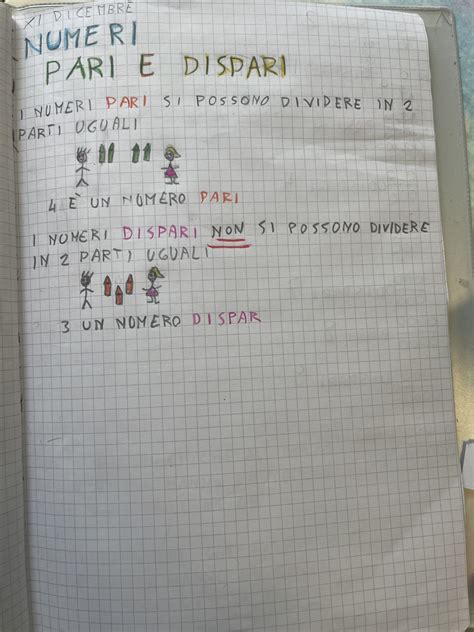 XI DICEMBRE
NUMERI
PARI E DISPARI
I NUMERI PARI SI POSSONO DIVIDERE IN 2
PARTI UGUALI
4 È UN NUMERO PARI
I NUMERI DISPARI NON SI POSSONO DIVIDERE
IN 2 PARTI UGUALI
3 UN NOMERO DISPAR